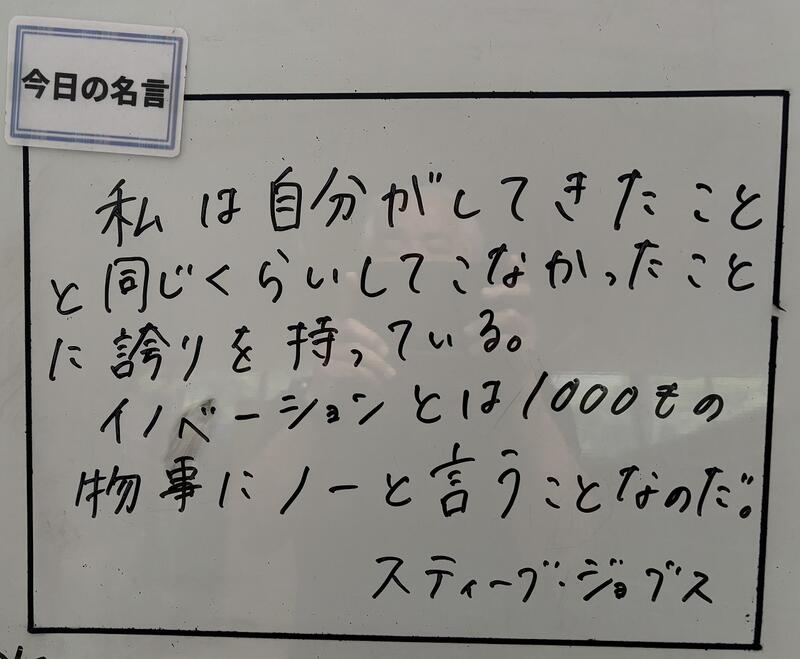 今日の名言
私は自分がしてきたこと
と同じくらいしてこなかったこと
に誇りを持っている。
イノベーションとは1000もの
物事にノーと言うことなのだ。
スティーブ・ジョブス